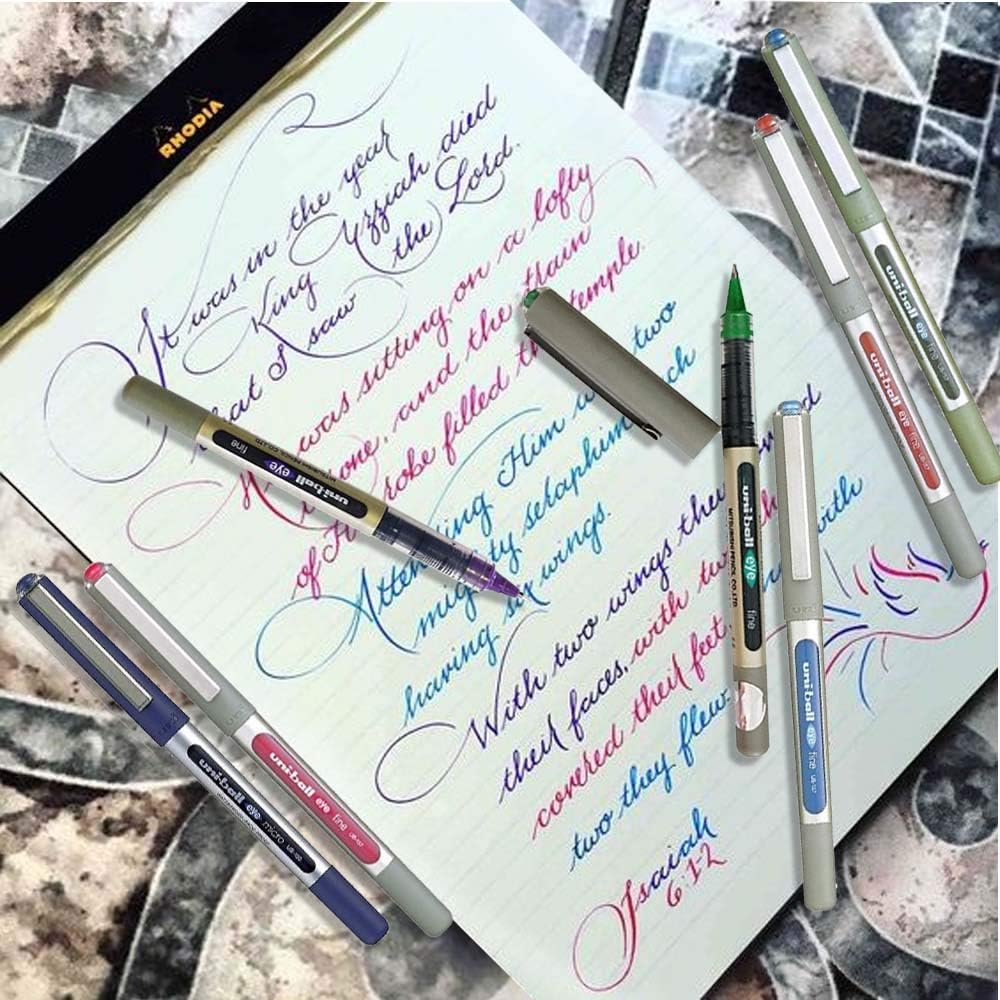 RHODIA
It was in the year
King Uzziah died
that I saw the Lord.
He was sitting on a lofty
throne, and the train
of His robe filled the temple.
Attending Him were two
mighty seraphim, each
having six wings.
With two wings they
their faces, with two
covered their feet, with
two they flew.
Isaiah
6:1-2
uni-ball eye fine
MITSUBISHI PENCIL CO.LTD
uni-ball eye fine
MITSUBISHI PENCIL CO.LTD
uni-ball eye micro UB-150
uni-ball eye fine UB-157
uni-ball eye fine UB-157
uni-ball eye fine UB-157
uni-ball eye fine UB-157